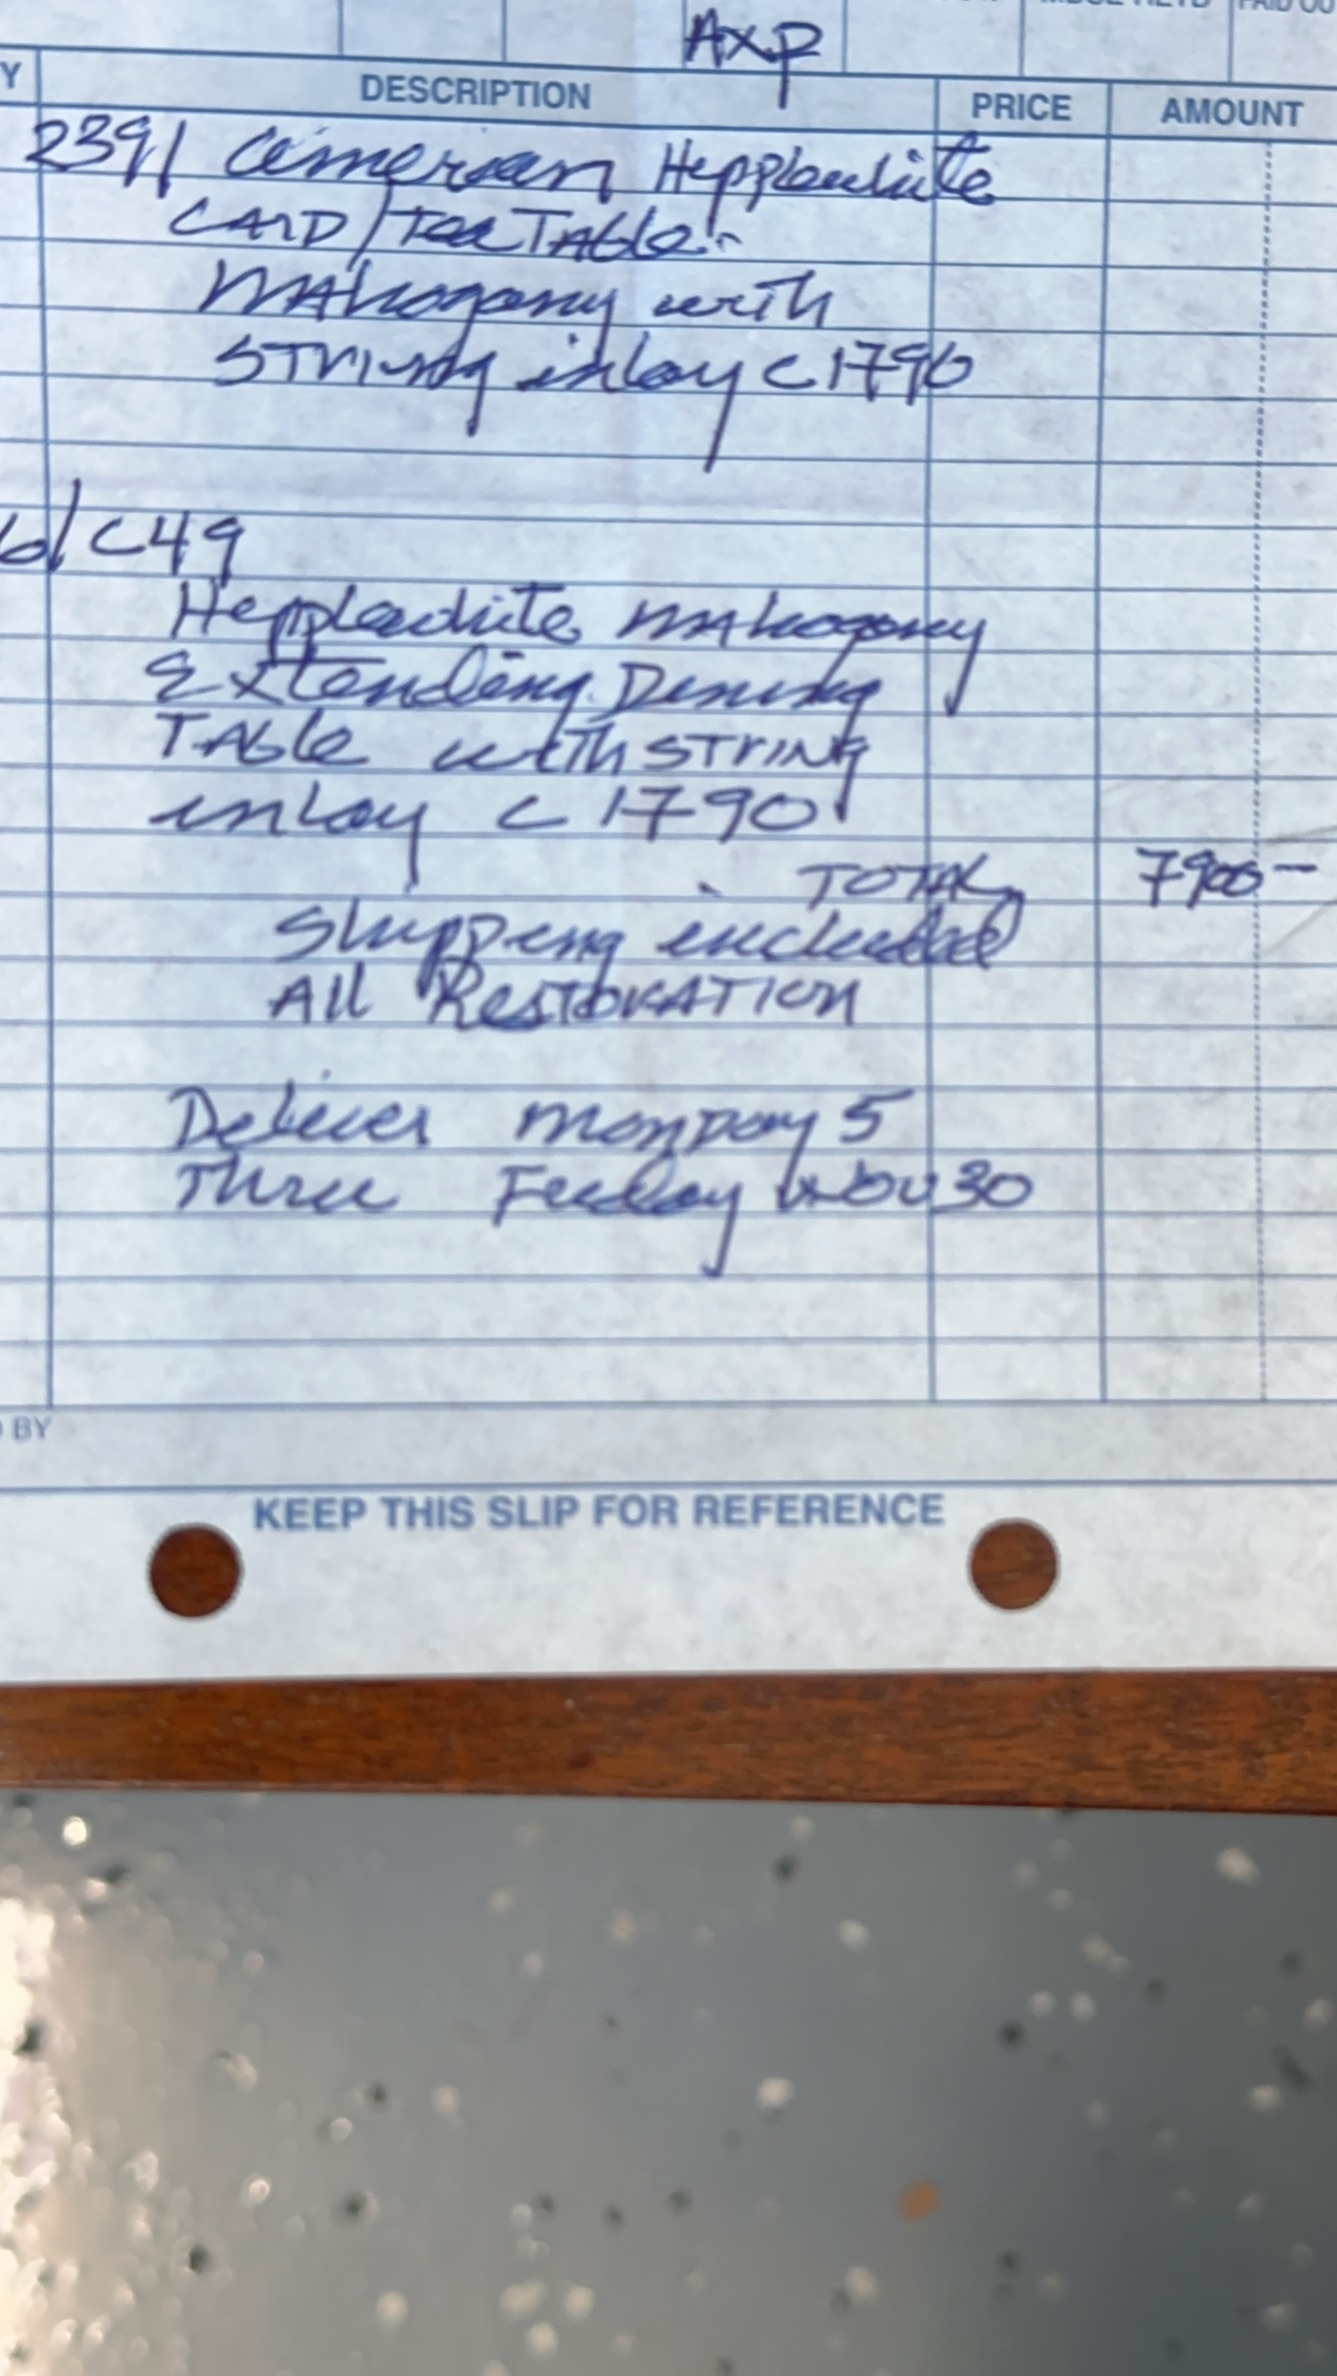 Axp
DESCRIPTION PRICE AMOUNT
2391 American Hepplewhite
CARD/Tea TAble
MAhogany with
STring inlay C 1790
C49
Hepplewhite MAhogany
Extending Dining
TAble with STRING
inlay C 1790
TOTAL 7900-
Shipping included
All RESTORATION
Deliver MonDay 5
Thru Friday Nov 30
BY
KEEP THIS SLIP FOR REFERENCE